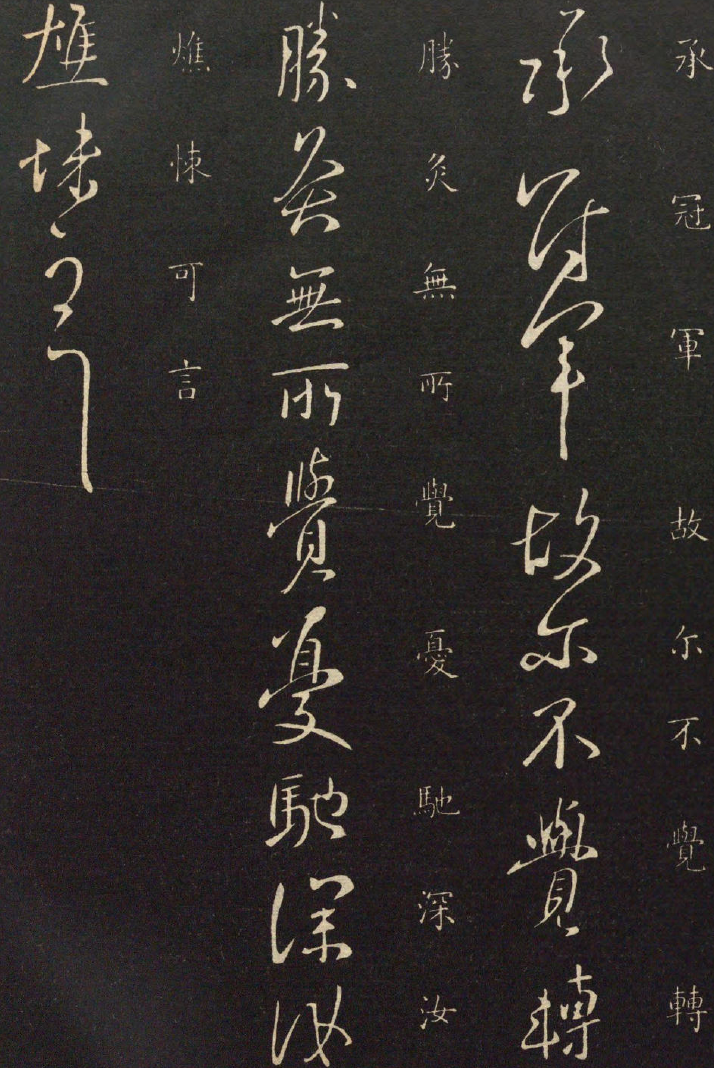 承冠軍故尔不覺轉
承冠軍故尔不覺轉
勝灸無所覺憂馳深汝
勝灸無所覺憂馳深汝
燋悚可言
燋悚可言